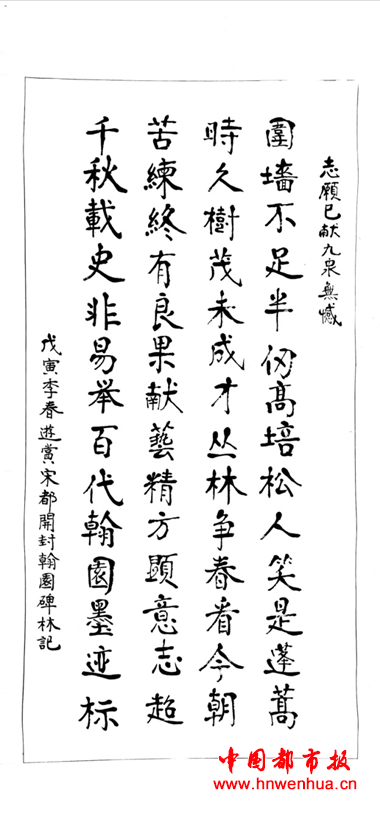 志願已献九泉無憾
圍墻不足半仞髙培松人笑是蓬蒿
時久樹茂未成才丛林争春看今朝
苦練終有良果献藝精方顯意志超
千秋載史非易举百代翰園墨迹标
戊寅李春遊賞宋都開封翰園碑林記
中国都市报
www.hnwenhua.cn